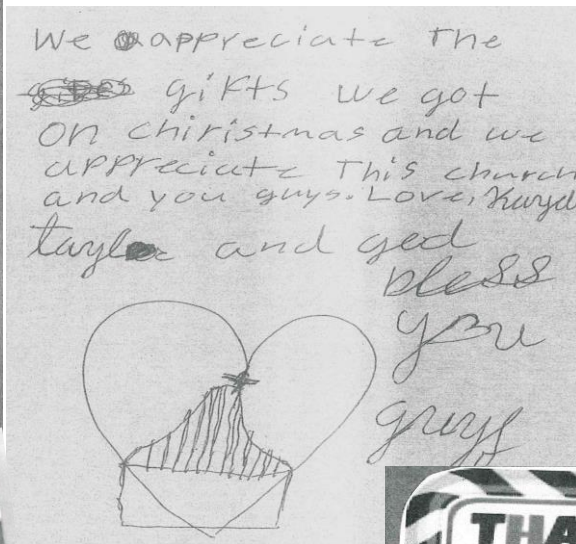 We appreciate The
gifts we got
on chiristmas and we
appreciate This church
and you guys. Love,
and god
bless
you
guys
THA